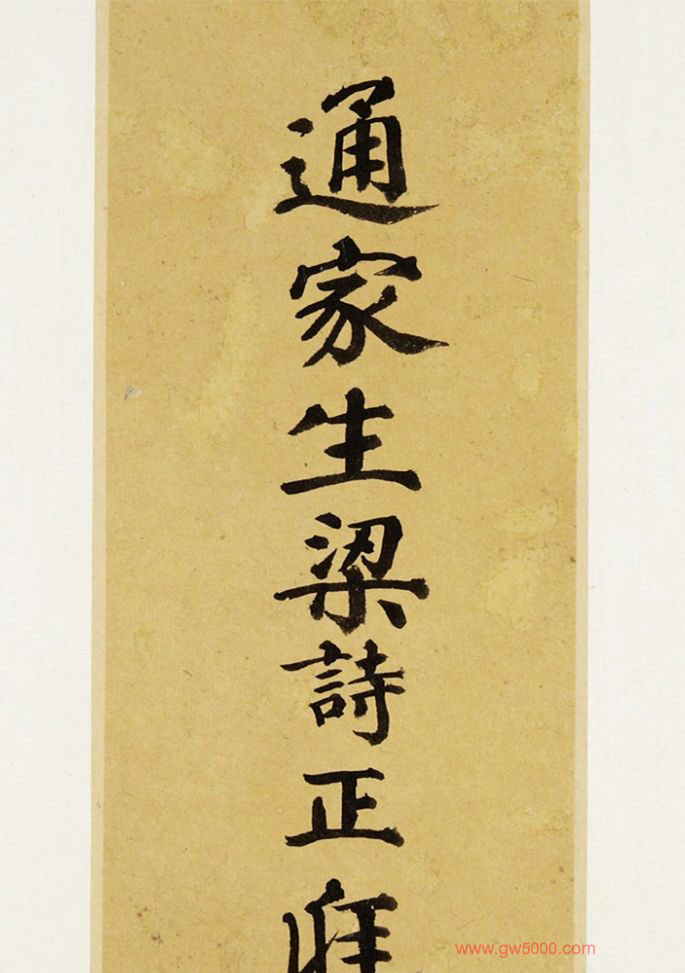 通家生梁詩正
www.gw5000.com